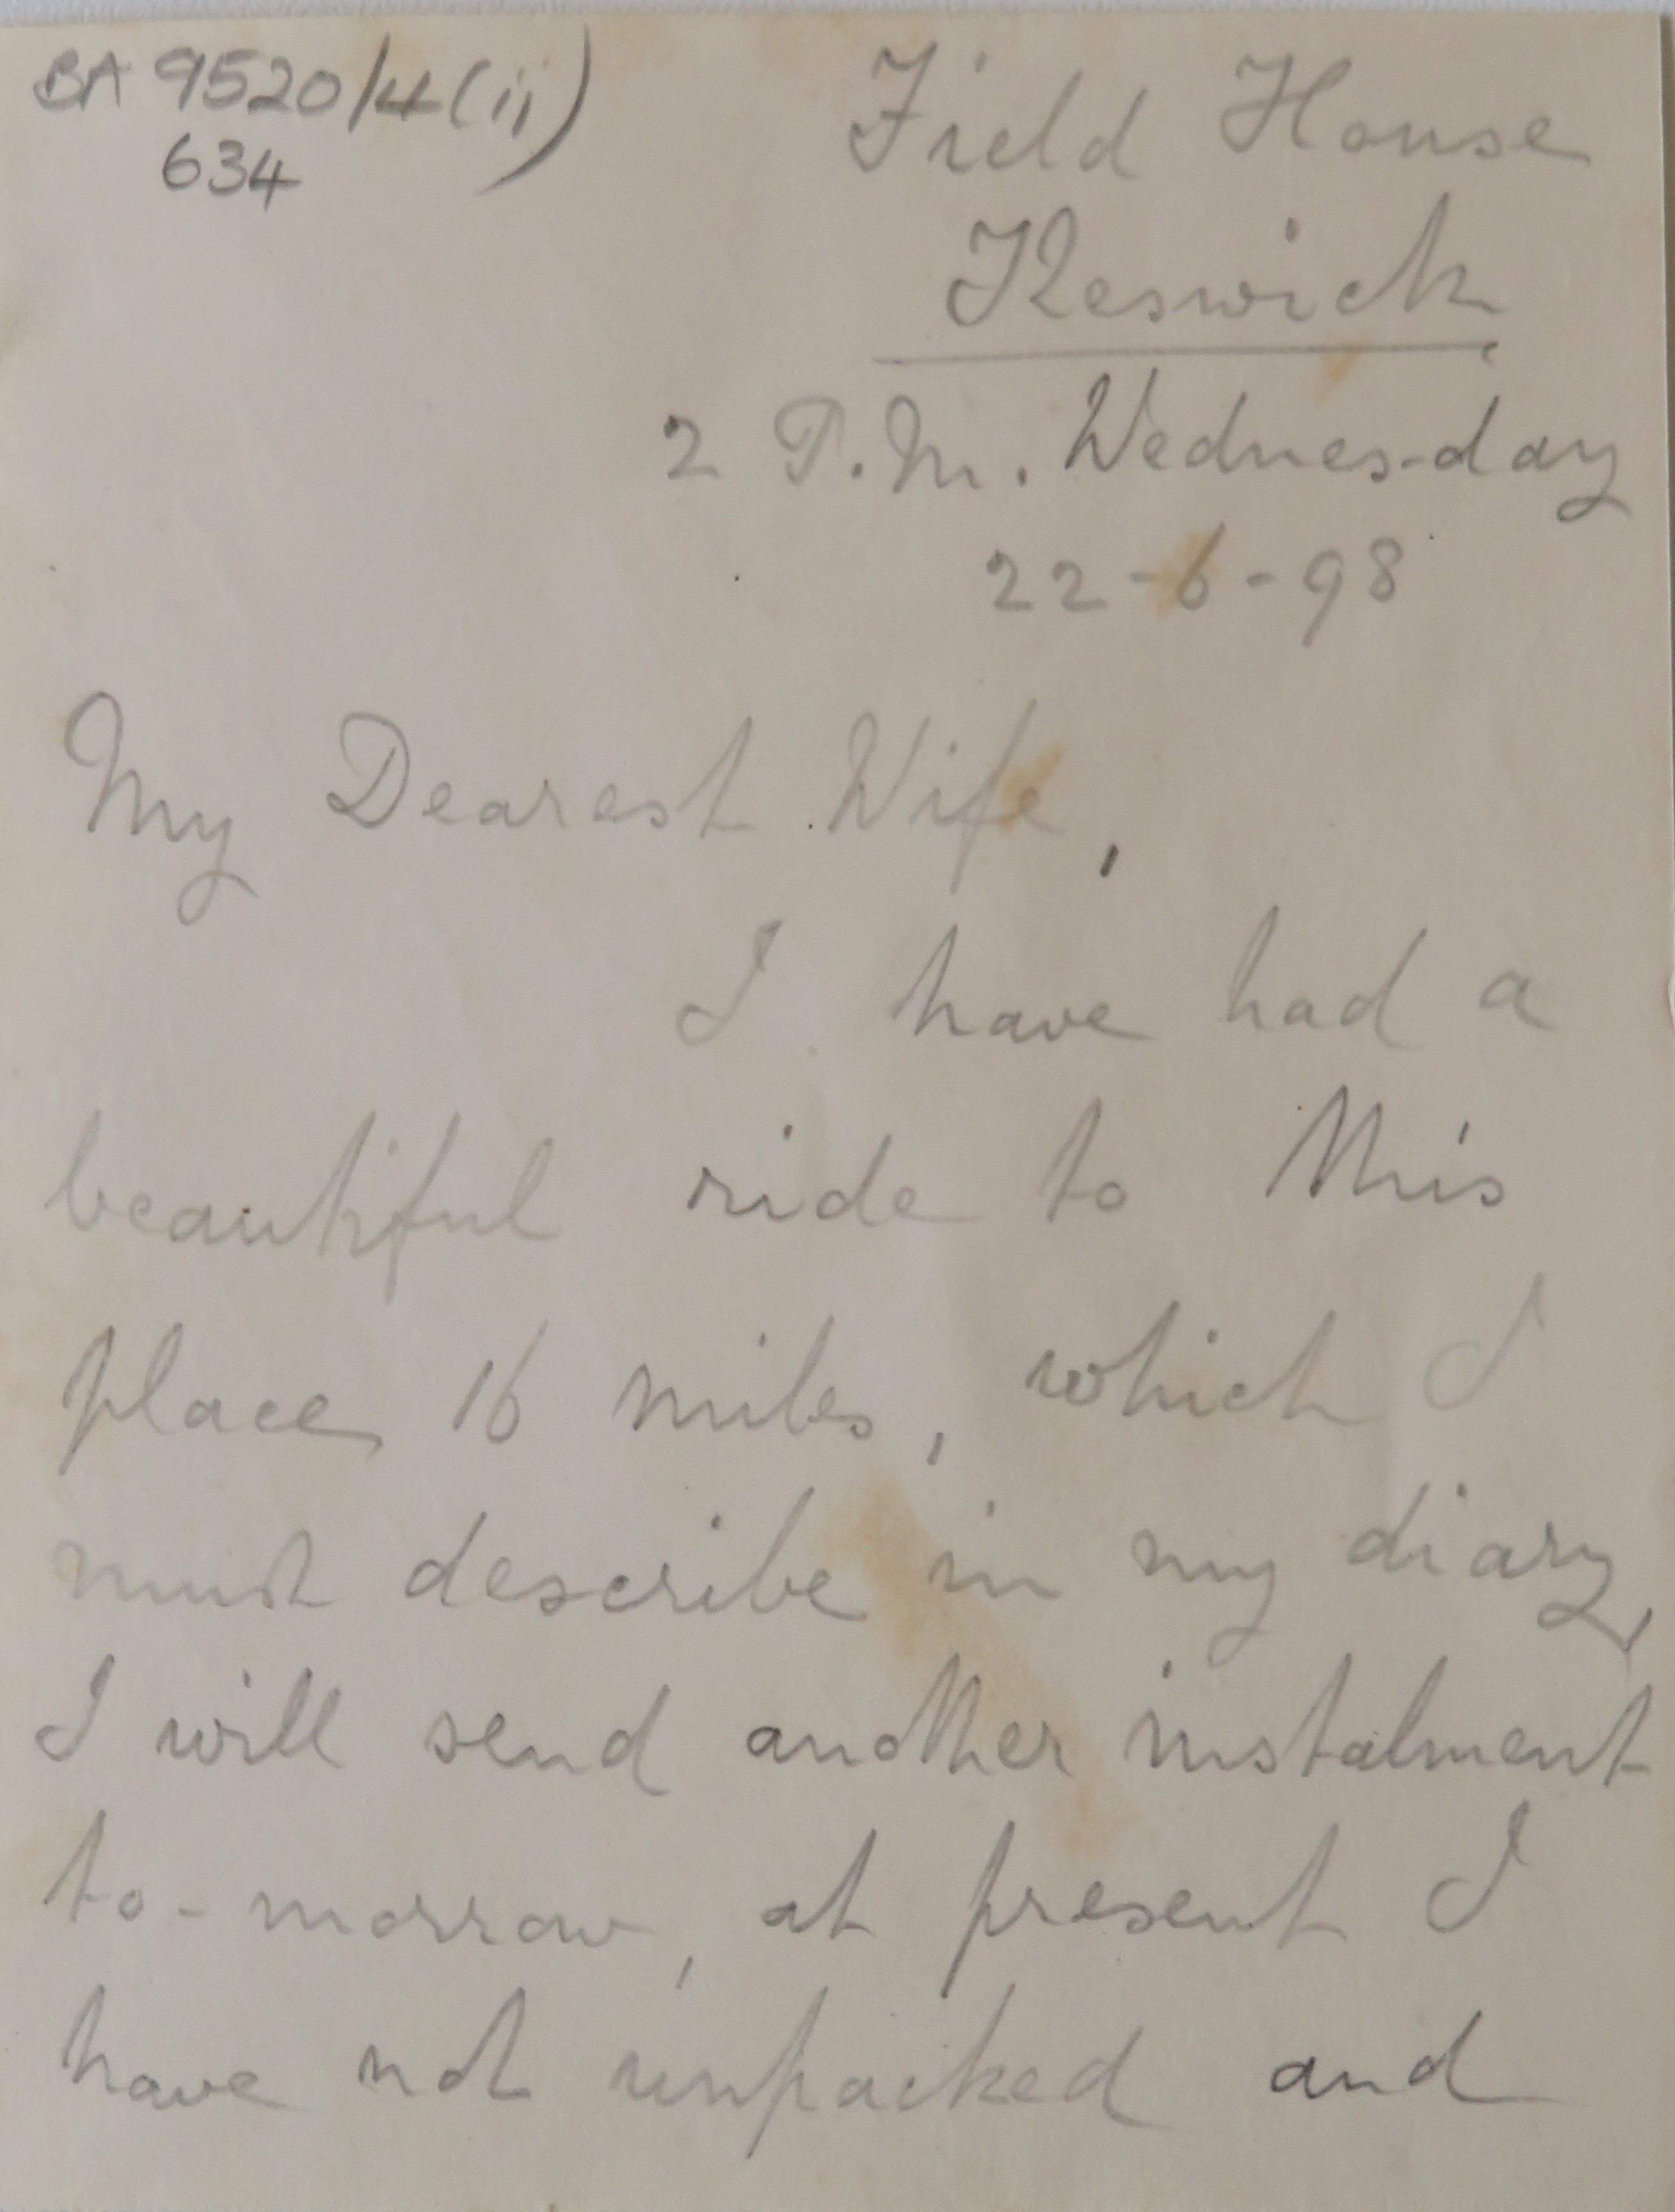 BA 9520/4(ii)
634
Field House
Keswick
2 P.M. Wednes-day
22-6-98
My Dearest Wife,
I have had a
beautiful ride to this
place 16 miles, which I
must describe in my diary,
I will send another instalment
to-morrow, at present I
have not unpacked and